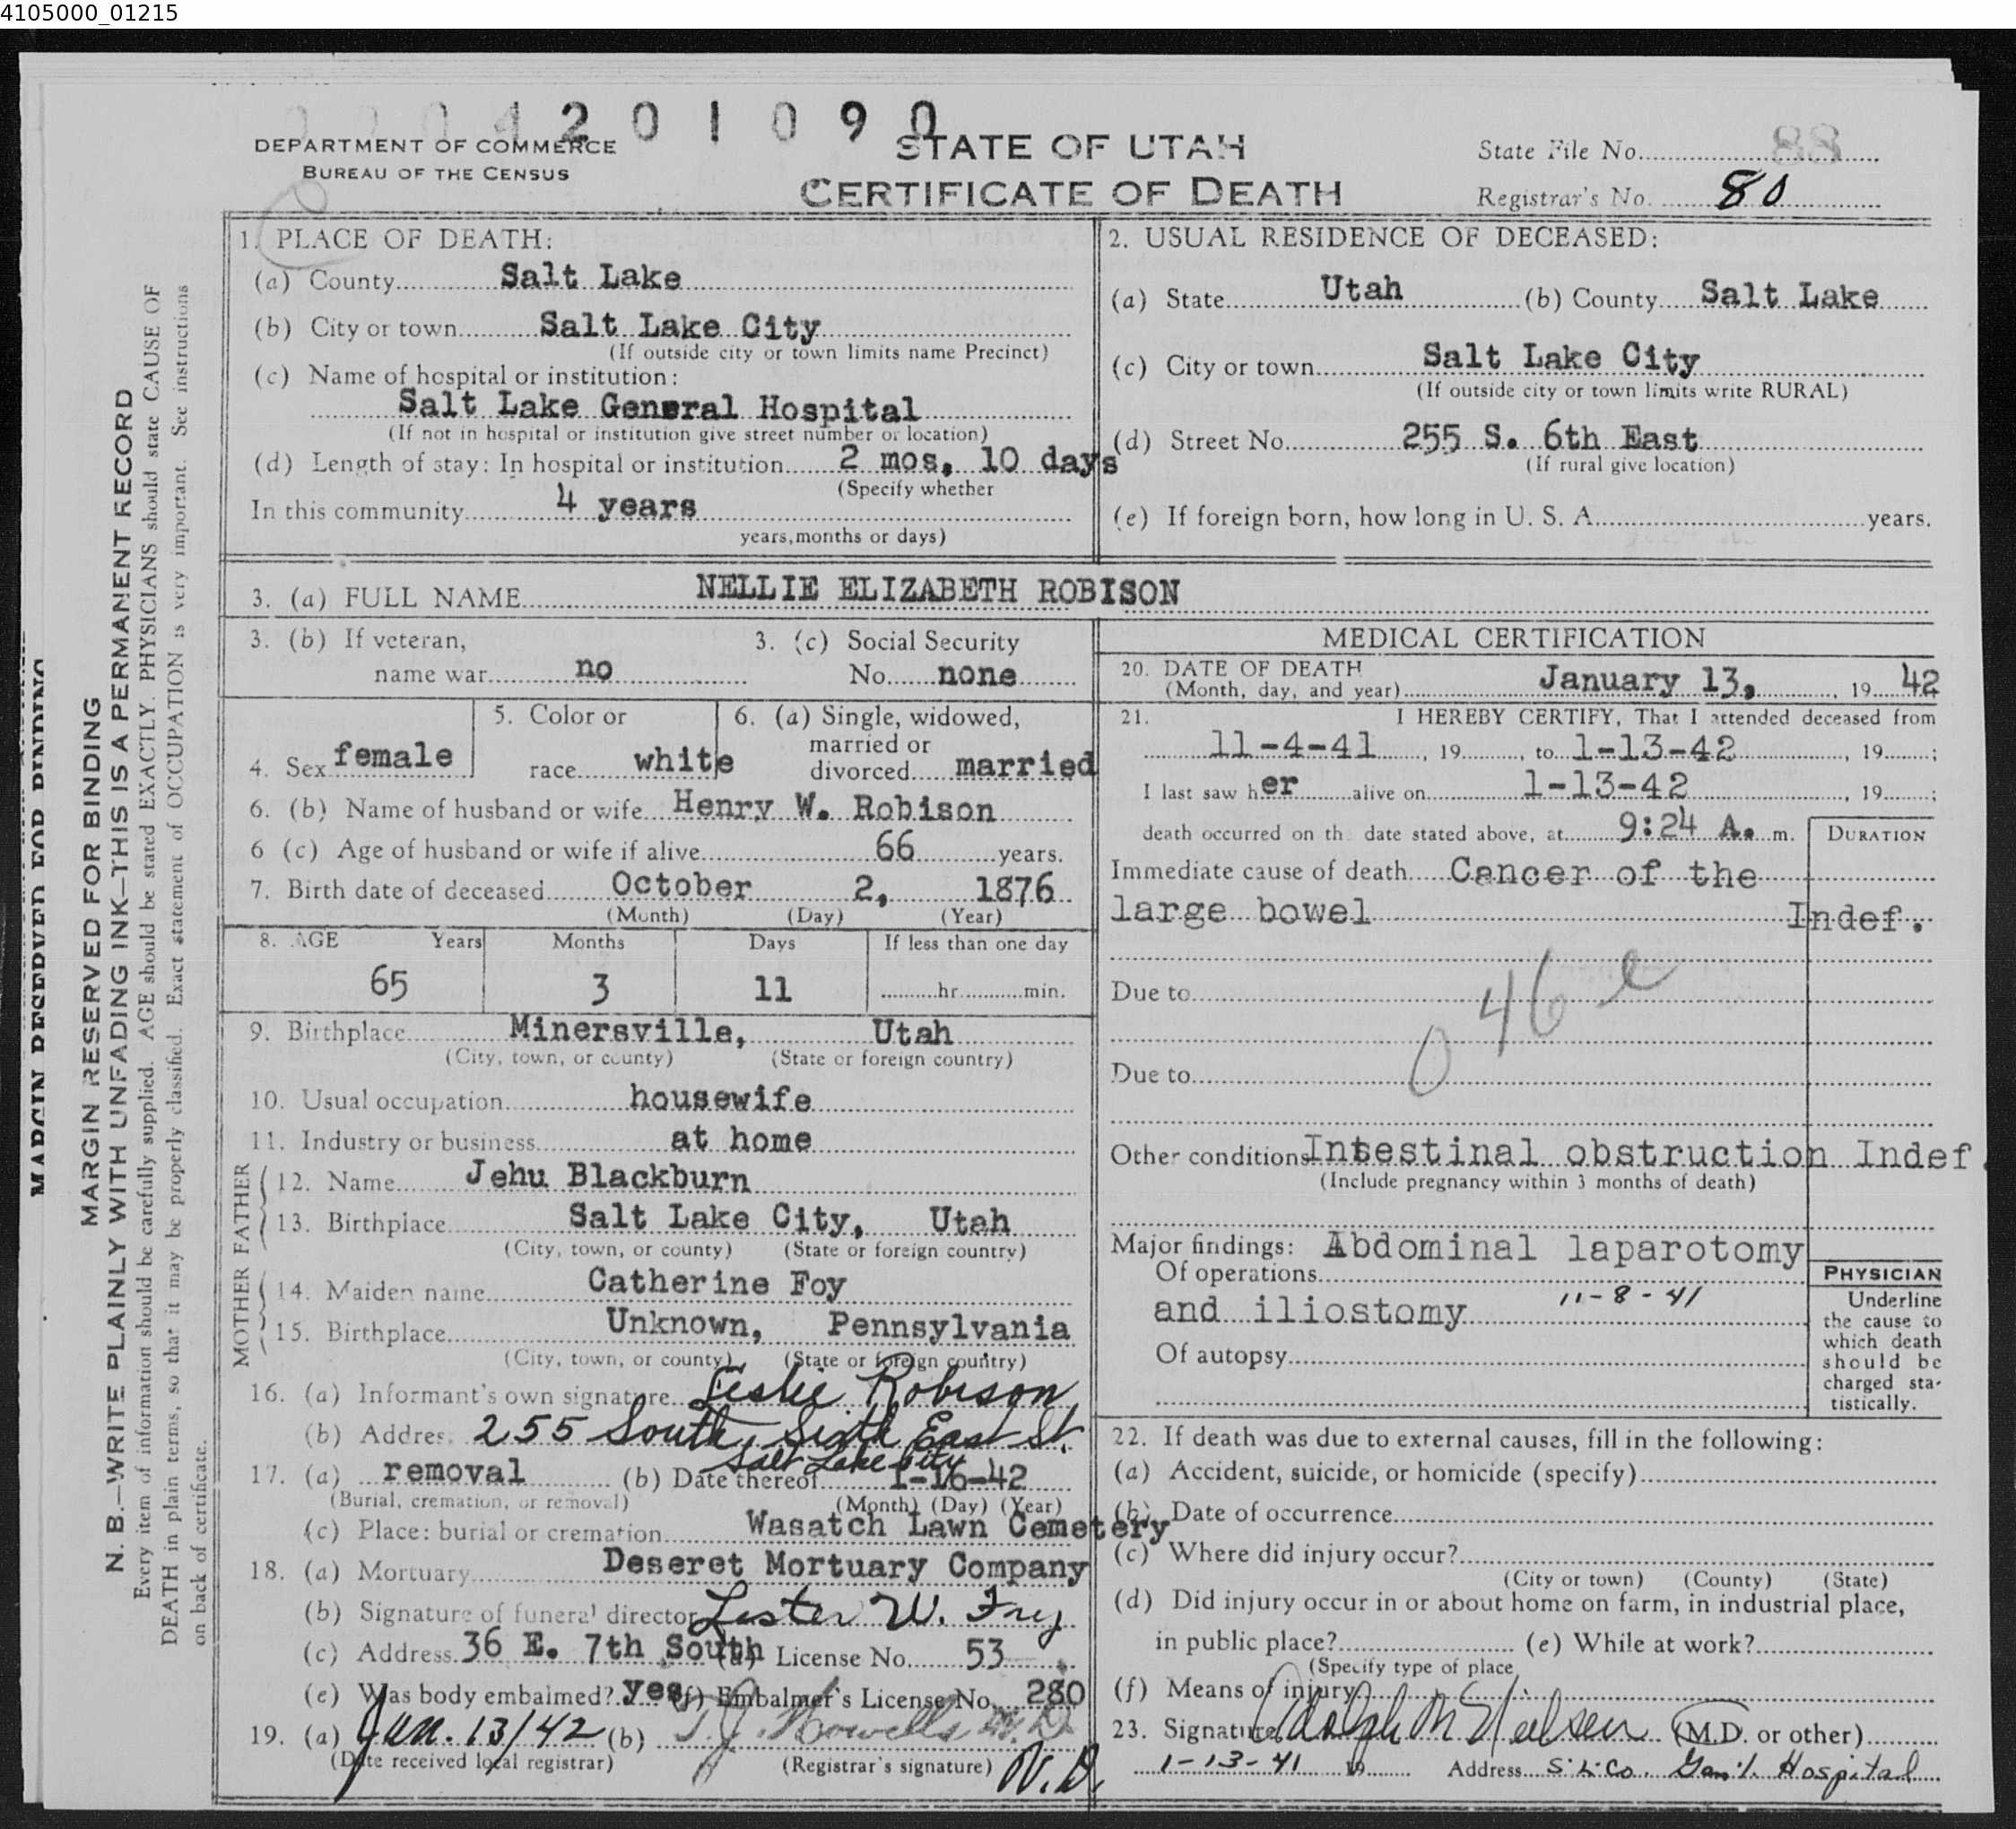 4105000_01215
4 2 0 1 0 9 0
DEPARTMENT OF COMMERCE
BUREAU OF THE CENSUS
STATE OF UTAH
CERTIFICATE OF DEATH
State File No. 88
Registrar's No. 80
MARGIN RESERVED FOR BINDING
MARGIN RESERVED FOR BINDING
N. B.—WRITE PLAINLY WITH UNFADING INK—THIS IS A PERMANENT RECORD
Every item of information should be carefully supplied. AGE should be stated EXACTLY. PHYSICIANS should state CAUSE OF
DEATH in plain terms, so that it may be properly classified. Exact statement of OCCUPATION is very important. See instructions
on back of certificate.
1. PLACE OF DEATH:
(a) County Salt Lake
(b) City or town Salt Lake City
(If outside city or town limits name Precinct)
(c) Name of hospital or institution:
Salt Lake General Hospital
(If not in hospital or institution give street number or location)
(d) Length of stay: In hospital or institution 2 mos, 10 days
(Specify whether
In this community 4 years
years, months or days)
2. USUAL RESIDENCE OF DECEASED:
(a) State Utah (b) County Salt Lake
(c) City or town Salt Lake City
(If outside city or town limits write RURAL)
(d) Street No. 255 S. 6th East
(If rural give location)
(e) If foreign born, how long in U. S. A. years.
3. (a) FULL NAME NELLIE ELIZABETH ROBISON
3. (b) If veteran,
name war no
3. (c) Social Security
No. none
4. Sex female
5. Color or
race white
6. (a) Single, widowed,
married or
divorced married
6. (b) Name of husband or wife Henry W. Robison
6 (c) Age of husband or wife if alive 66 years.
7. Birth date of deceased October 2, 1876
(Month) (Day) (Year)
8. AGE Years Months Days If less than one day
65 3 11 hr. min.
9. Birthplace Minersville, Utah
(City, town, or county) (State or foreign country)
10. Usual occupation housewife
11. Industry or business at home
FATHER
12. Name Jehu Blackburn
13. Birthplace Salt Lake City, Utah
(City, town, or county) (State or foreign country)
MOTHER
14. Maiden name Catherine Foy
15. Birthplace Unknown, Pennsylvania
(City, town, or county) (State or foreign country)
16. (a) Informant's own signature Leslie Robison
(b) Address 255 South, Sixth East St.
Salt Lake City
17. (a) removal (b) Date thereof 1-16-42
(Burial, cremation, or removal) (Month) (Day) (Year)
(c) Place: burial or cremation Wasatch Lawn Cemetery
18. (a) Mortuary Deseret Mortuary Company
(b) Signature of funeral director Lester W. Frey
(c) Address 36 E. 7th South (d) License No. 53
(e) Was body embalmed? yes (f) Embalmer's License No. 280
19. (a) Jan. 13/42 (b) T. J. Howells M.D.
(Date received local registrar) (Registrar's signature)
MEDICAL CERTIFICATION
20. DATE OF DEATH
(Month, day, and year) January 13, , 19 42
21. I HEREBY CERTIFY, That I attended deceased from
11-4-41 , 19 , to 1-13-42 , 19 ;
I last saw her alive on 1-13-42 , 19 ;
death occurred on the date stated above, at 9:24 A. m.
DURATION
Immediate cause of death Cancer of the
large bowel Indef.
046 e
Due to
Due to
Other conditions Intestinal obstruction Indef.
(Include pregnancy within 3 months of death)
Major findings: Abdominal laparotomy
Of operations
and iliostomy 11-8-41
Of autopsy
PHYSICIAN
Underline
the cause to
which death
should be
charged sta-
tistically.
22. If death was due to external causes, fill in the following:
(a) Accident, suicide, or homicide (specify)
(b) Date of occurrence
(c) Where did injury occur?
(City or town) (County) (State)
(d) Did injury occur in or about home on farm, in industrial place,
in public place? (e) While at work?
(Specify type of place
(f) Means of injury
23. Signature Adolph M Nielsen (M.D. or other)
1-13-41 19 Address S. L. Co. Gen'l. Hospital